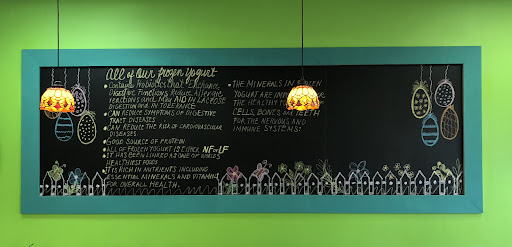 All of Our frozen Yogurt
• Contains Probiotics that Enhance
Digestive Functions, Reduce Allergic
reactions and May AID in Lactose
Digestion and In Tolerance
• CAN REDUCE SYMPTOMS OF DIGESTIVE
TRACT DISEASES
• CAN REDUCE THE RISK OF CARDIOVASCULAR
DISEASES
• GOOD SOURCE OF PROTEIN
• ALL OF FROZEN YOGURT IS EITHER NF or LF
• IT HAS BEEN LINKED AS ONE OF WORLDS
HEALTHIEST FOODS
• IT IS RICH IN NUTRIENTS INCLUDING
ESSENTIAL MINERALS AND VITAMINS
FOR OVERALL HEALTH.
• THE MINERALS IN
YOGURT ARE
THE HEALTHY
CELLS, BONES TEETH
FOR THE NERVOUS AND
IMMUNE SYSTEMS.